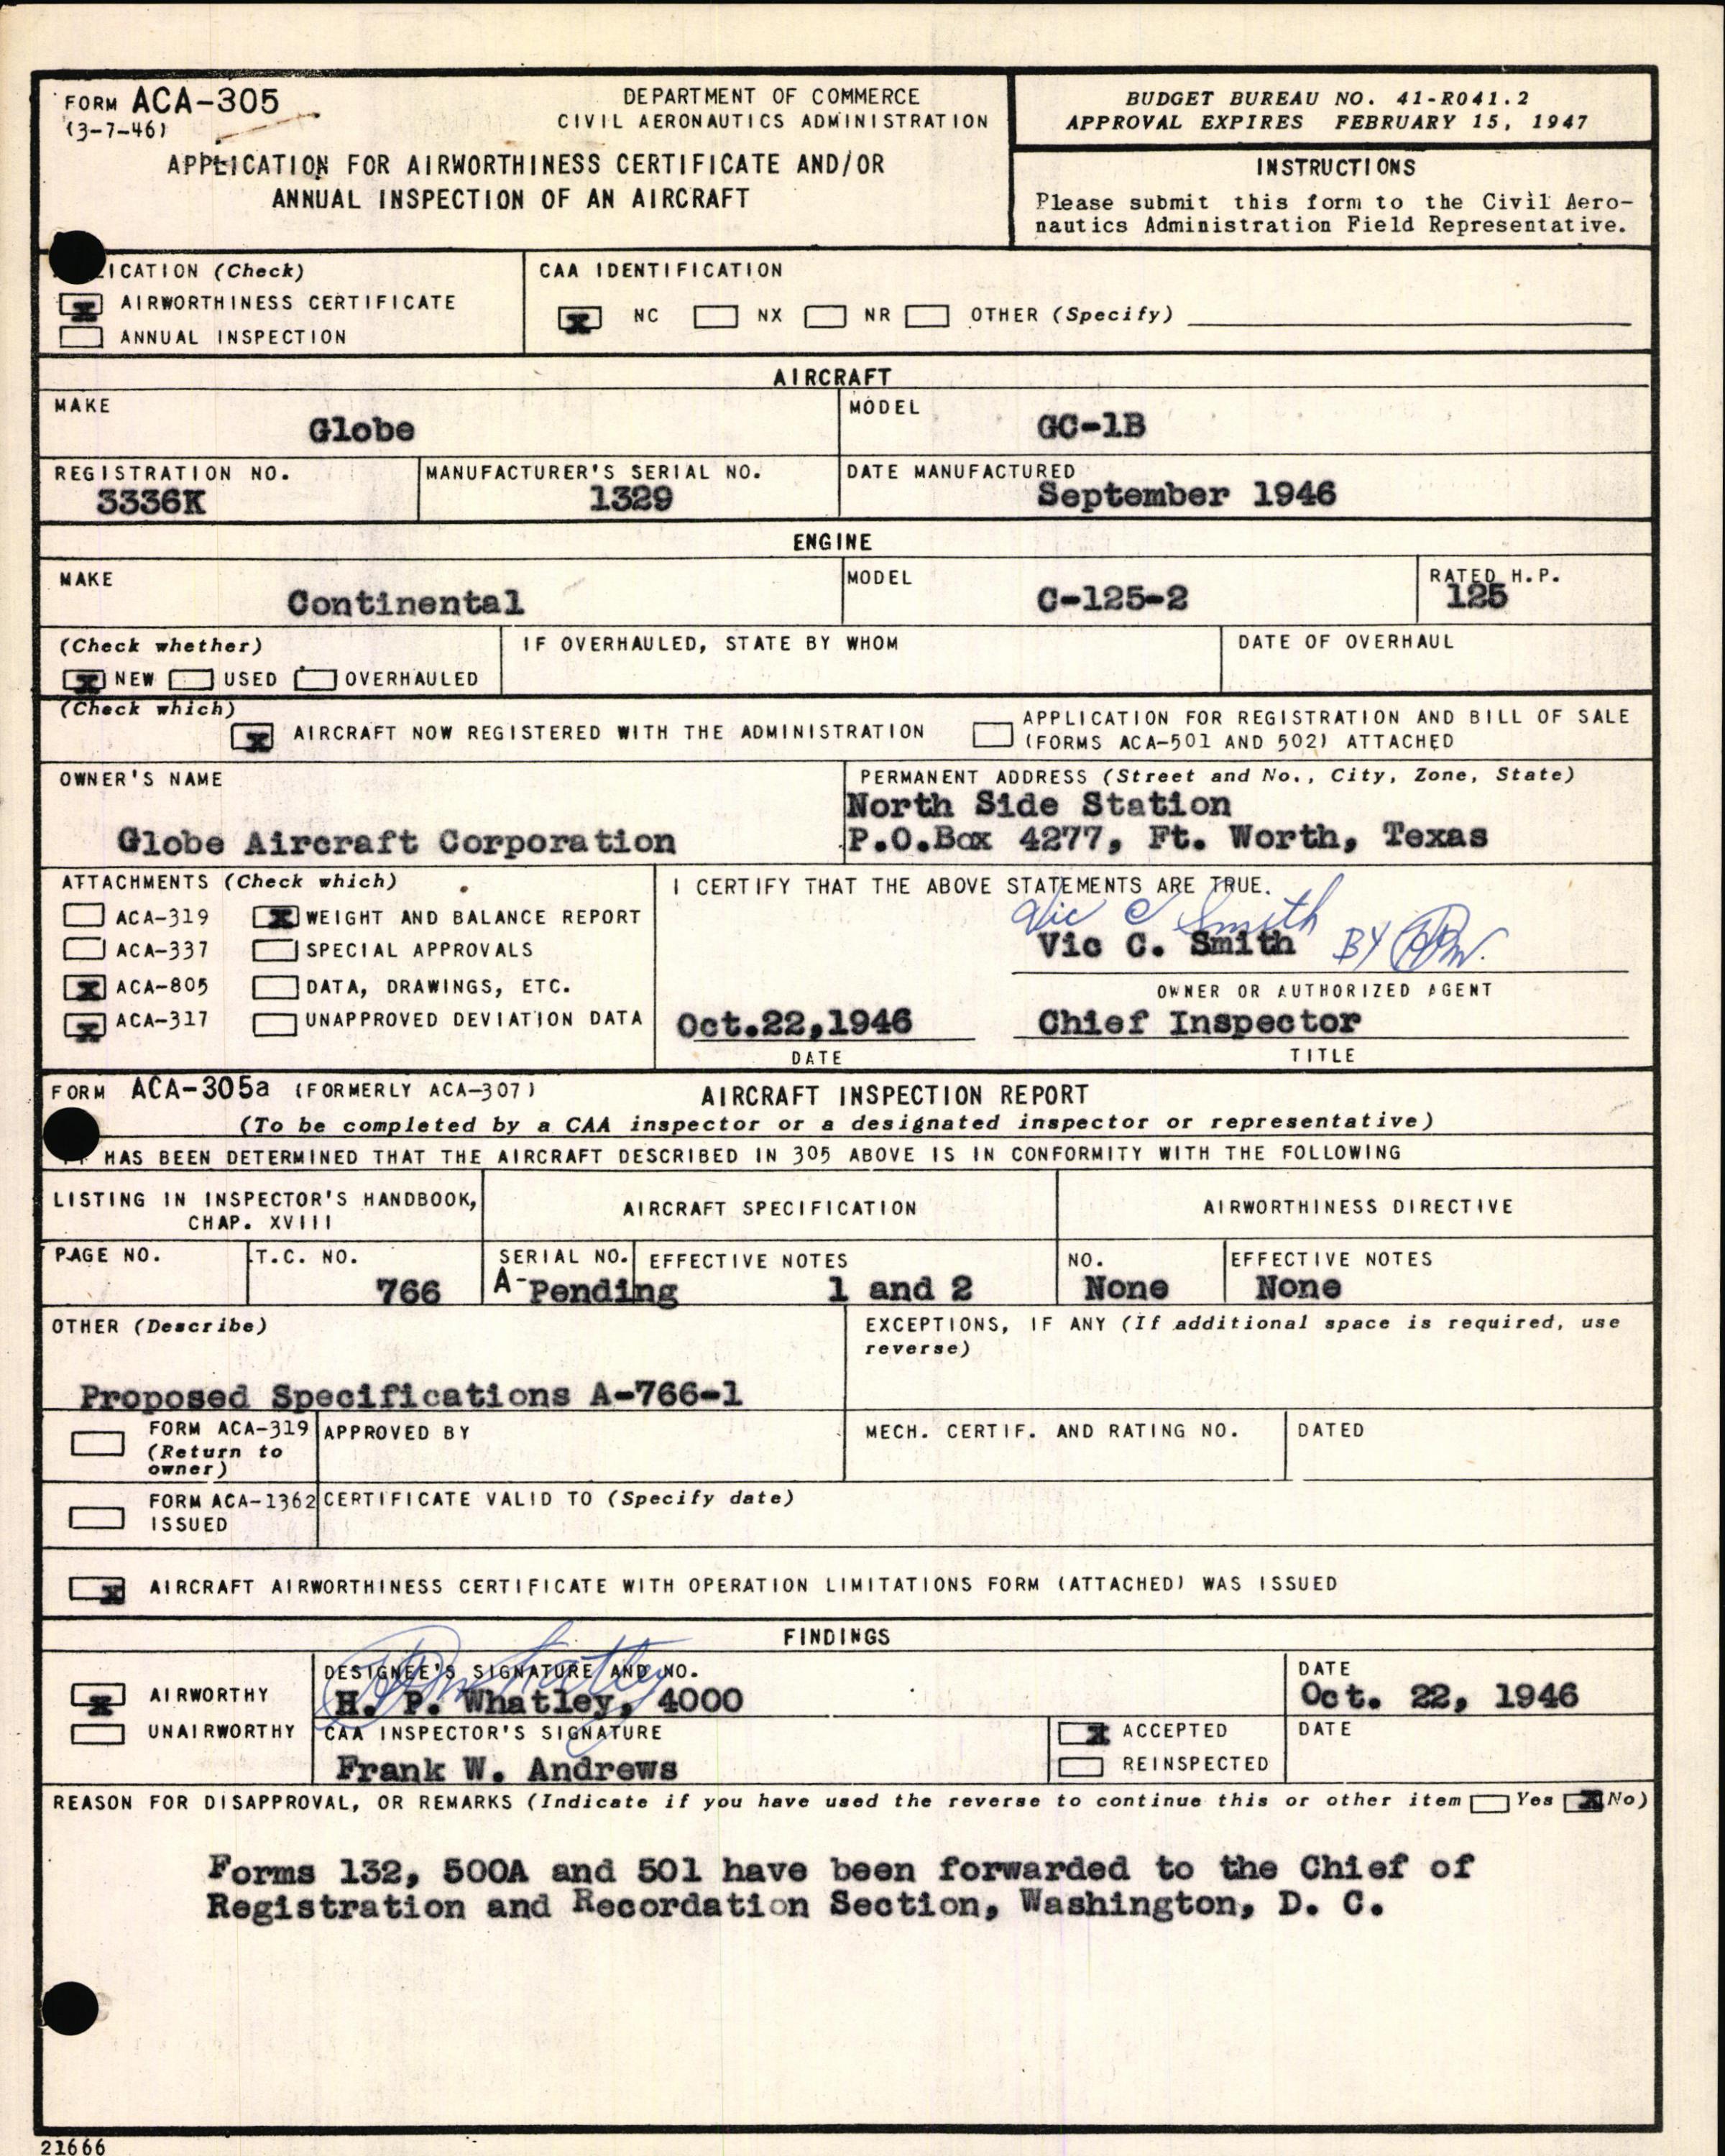 FORM ACA-305
(3-7-46)
DEPARTMENT OF COMMERCE
CIVIL AERONAUTICS ADMINISTRATION
APPLICATION FOR AIRWORTHINESS CERTIFICATE AND/OR
ANNUAL INSPECTION OF AN AIRCRAFT
BUDGET BUREAU NO. 41-R041.2
APPROVAL EXPIRES FEBRUARY 15, 1947
INSTRUCTIONS
Please submit this form to the Civil Aero-
nautics Administration Field Representative.
LICATION (Check)
x AIRWORTHINESS CERTIFICATE
ANNUAL INSPECTION
CAA IDENTIFICATION
x NC NX NR OTHER (Specify)
AIRCRAFT
MAKE
Globe
MODEL
GC-1B
REGISTRATION NO.
3336K
MANUFACTURER'S SERIAL NO.
1329
DATE MANUFACTURED
September 1946
ENGINE
MAKE
Continental
MODEL
C-125-2
RATED H.P.
125
(Check whether)
x NEW USED OVERHAULED
IF OVERHAULED, STATE BY WHOM
DATE OF OVERHAUL
(Check which)
x AIRCRAFT NOW REGISTERED WITH THE ADMINISTRATION
APPLICATION FOR REGISTRATION AND BILL OF SALE
(FORMS ACA-501 AND 502) ATTACHED
OWNER'S NAME
Globe Aircraft Corporation
PERMANENT ADDRESS (Street and No., City, Zone, State)
North Side Station
P.O.Box 4277, Ft. Worth, Texas
ATTACHMENTS (Check which)
ACA-319 x WEIGHT AND BALANCE REPORT
ACA-337 SPECIAL APPROVALS
x ACA-805 DATA, DRAWINGS, ETC.
x ACA-317 UNAPPROVED DEVIATION DATA
I CERTIFY THAT THE ABOVE STATEMENTS ARE TRUE.
Vic C Smith
Vic C. Smith BY
OWNER OR AUTHORIZED AGENT
Oct.22,1946 Chief Inspector
DATE TITLE
FORM ACA-305a (FORMERLY ACA-307) AIRCRAFT INSPECTION REPORT
(To be completed by a CAA inspector or a designated inspector or representative)
HAS BEEN DETERMINED THAT THE AIRCRAFT DESCRIBED IN 305 ABOVE IS IN CONFORMITY WITH THE FOLLOWING
LISTING IN INSPECTOR'S HANDBOOK,
CHAP. XVIII
AIRCRAFT SPECIFICATION
AIRWORTHINESS DIRECTIVE
PAGE NO.
T.C. NO.
766
SERIAL NO.
A-Pending
EFFECTIVE NOTES
1 and 2
NO.
None
EFFECTIVE NOTES
None
OTHER (Describe)
Proposed Specifications A-766-1
EXCEPTIONS, IF ANY (If additional space is required, use
reverse)
FORM ACA-319
(Return to
owner)
APPROVED BY
MECH. CERTIF. AND RATING NO.
DATED
FORM ACA-1362
ISSUED
CERTIFICATE VALID TO (Specify date)
x AIRCRAFT AIRWORTHINESS CERTIFICATE WITH OPERATION LIMITATIONS FORM (ATTACHED) WAS ISSUED
FINDINGS
x AIRWORTHY
UNAIRWORTHY
DESIGNEE'S SIGNATURE AND NO.
H. P. Whatley, 4000
DATE
Oct. 22, 1946
CAA INSPECTOR'S SIGNATURE
Frank W. Andrews
x ACCEPTED
REINSPECTED
DATE
REASON FOR DISAPPROVAL, OR REMARKS (Indicate if you have used the reverse to continue this or other item Yes x No)
Forms 132, 500A and 501 have been forwarded to the Chief of
Registration and Recordation Section, Washington, D. C.
21666